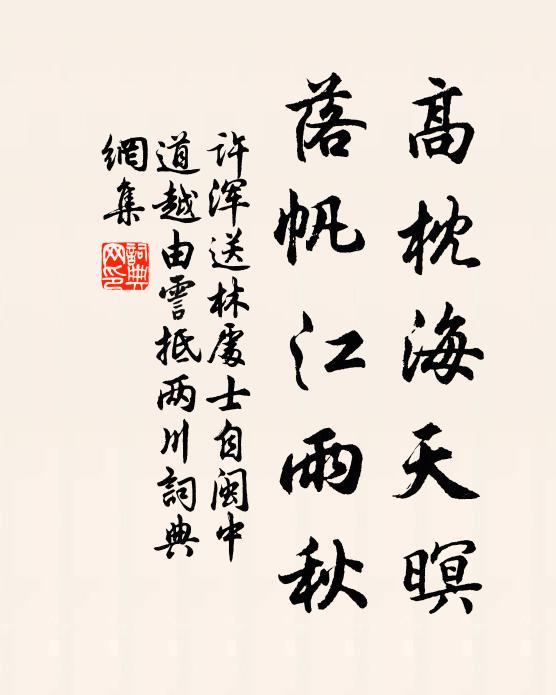 高枕海天暝
落帆江雨秋
许浑送林處士自閩中
道越由霅抵两川詞典
網集
詞典
网印